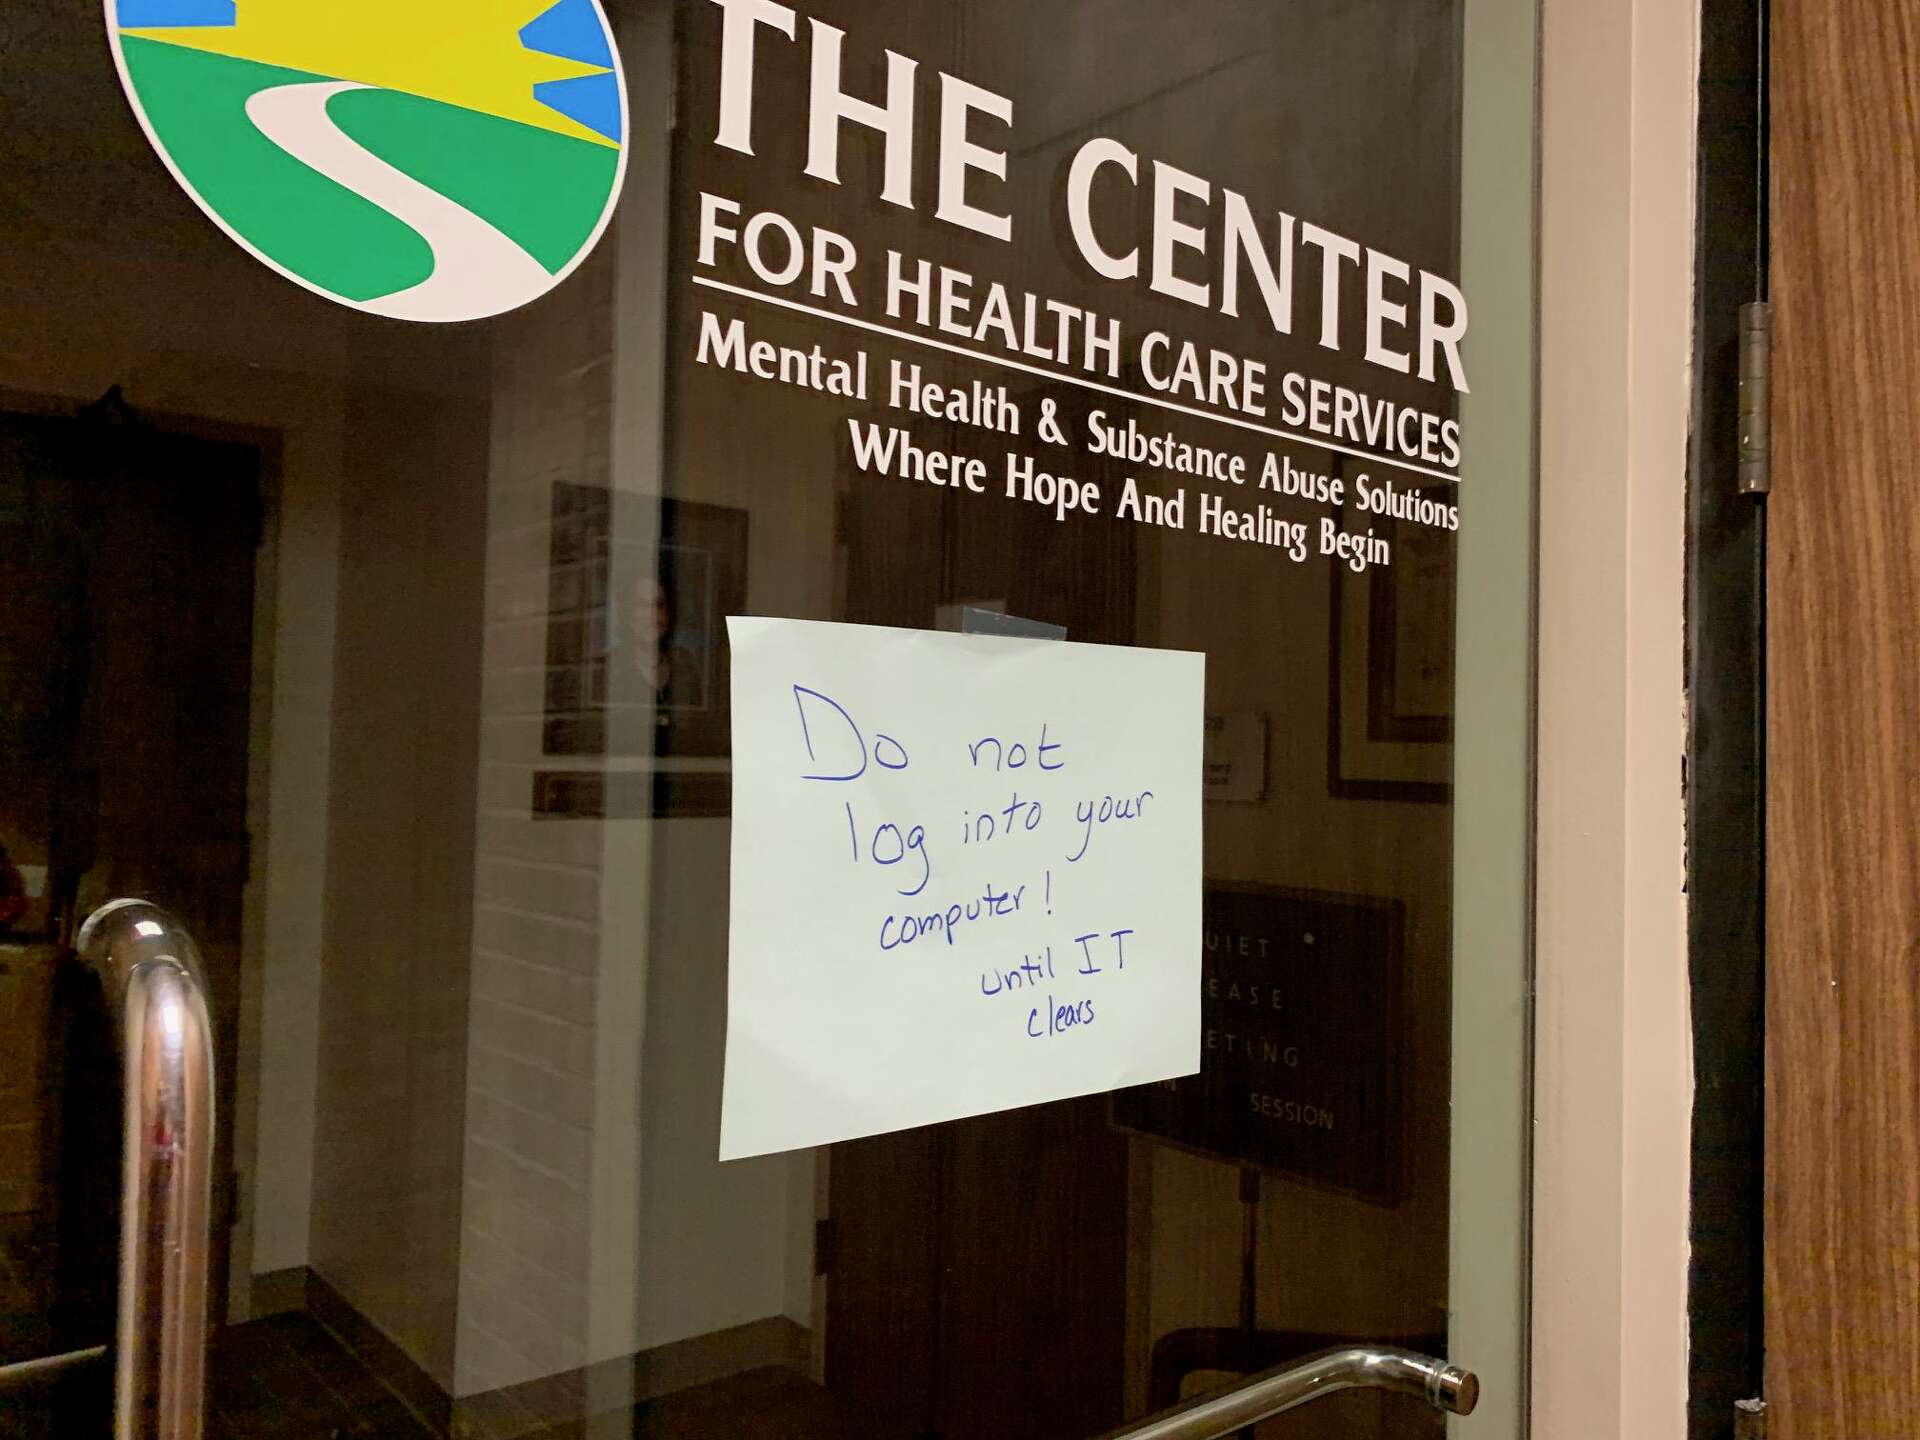 THE CENTER
FOR HEALTH CARE SERVICES
Mental Health & Substance Abuse Solutions
Where Hope And Healing Begin
Do not
log into your
computer!
until IT
clears
UIET
EASE
ETING
SESSION